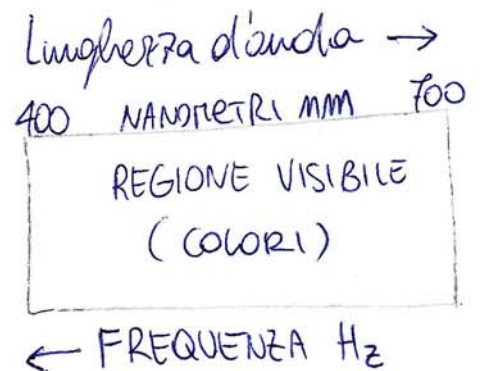 Lunghezza d'onda →
400 NANOMETRI nm 700
REGIONE VISIBILE
( COLORI )
← FREQUENZA Hz